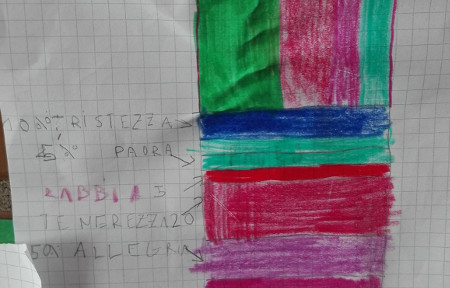 TRISTEZZA
PAORA
RABBIA 5
TENEREZZA 20
50 ALLEGRIA